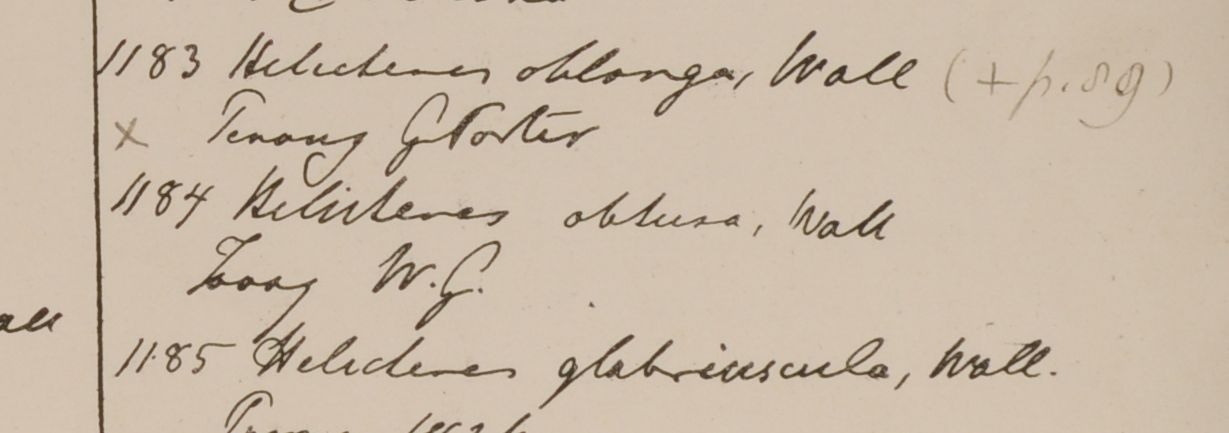 1183 Helicteres oblonga, Wall (+ p. 89)
x Penang G Porter
1184 Helicteres obtusa, Wall
W.G.
all
1185 Helicteres glabriuscula, Wall.